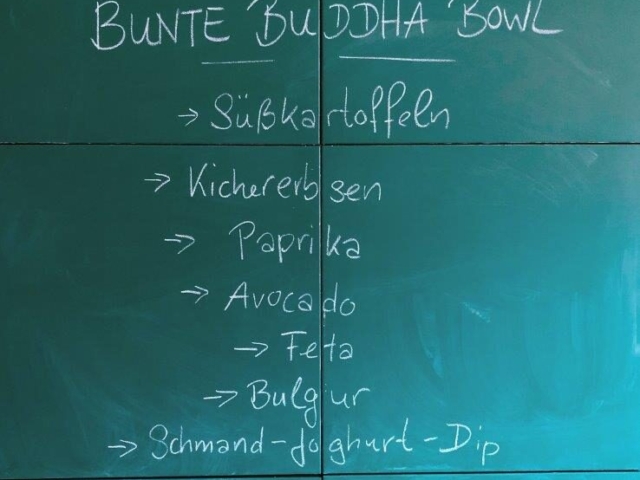 BUNTE BUDDHA BOWL
→ Süßkartoffeln
→ Kichererbsen
→ Paprika
→ Avocado
→ Feta
→ Bulgur
→ Schmand-Joghurt-Dip